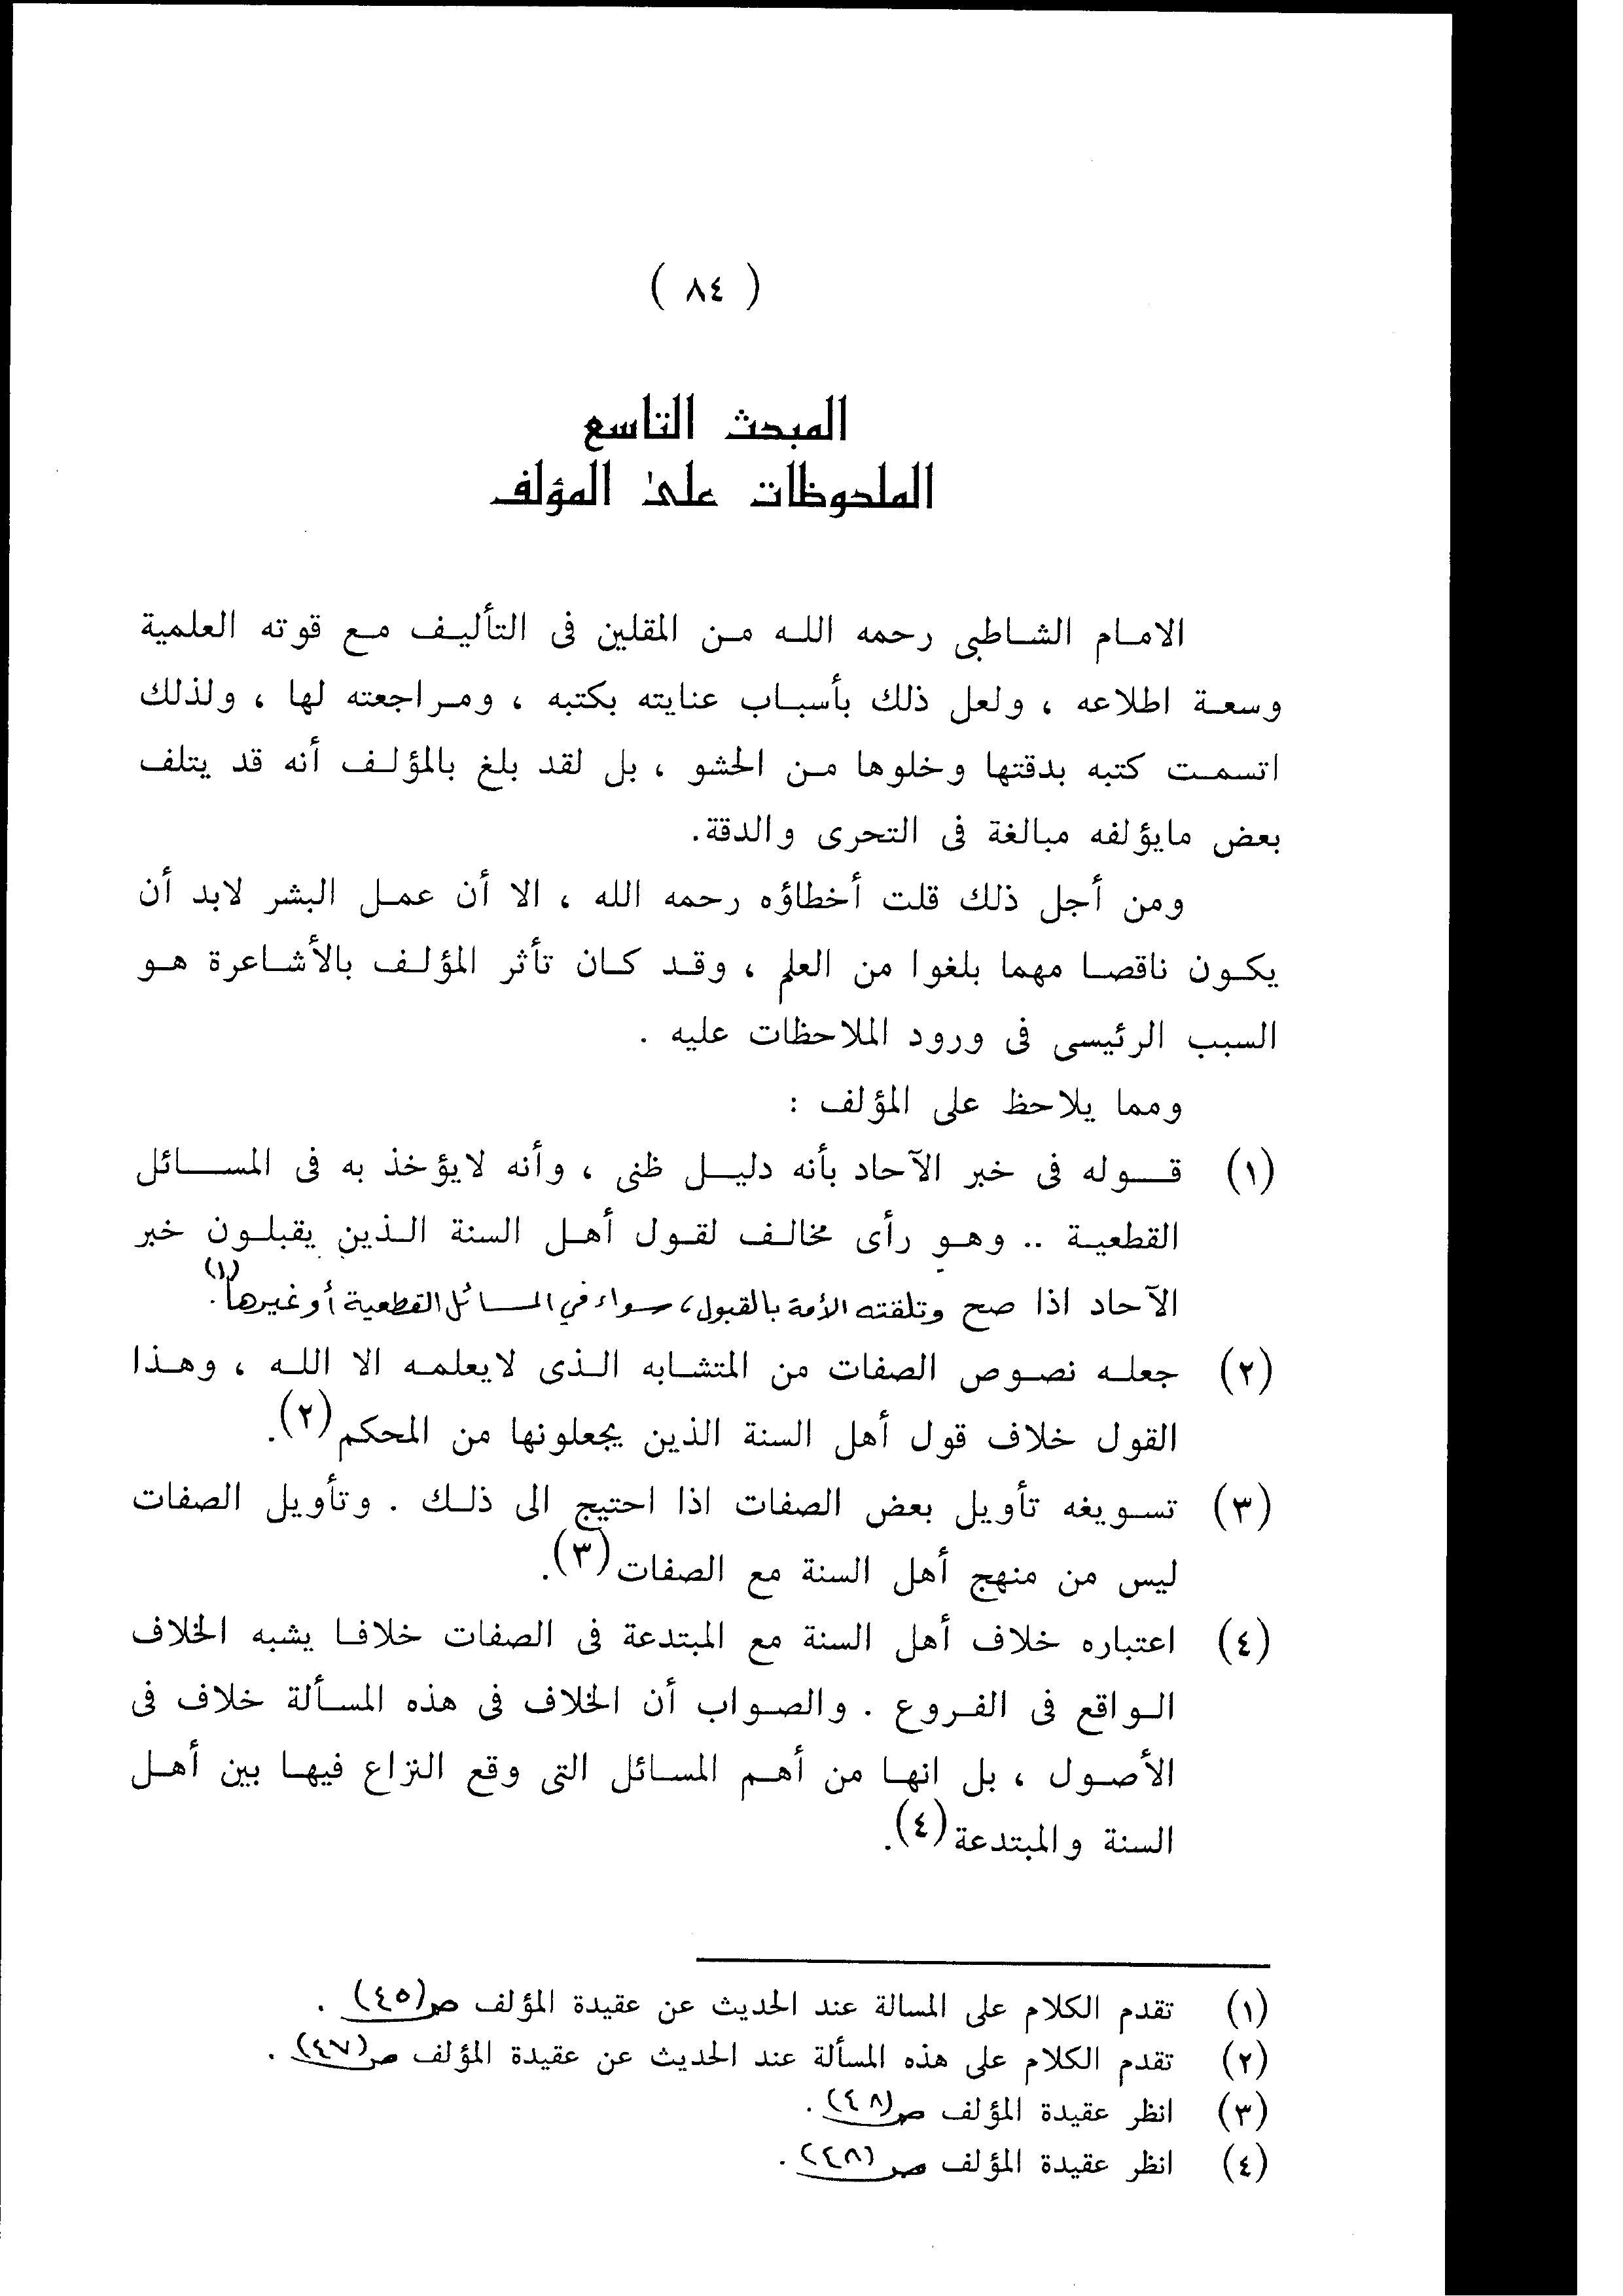 ( ٨٤ )
المبحث التاسع
الملحوظات على المؤلف
الامام الشاطبى رحمه الله من المقلين فى التأليف مع قوته العلمية
وسعة اطلاعه ، ولعل ذلك بأسباب عنايته بكتبه ، ومراجعته لها ، ولذلك
اتسمت كتبه بدقتها وخلوها من الحشو ، بل لقد بلغ بالمؤلف أنه قد يتلف
بعض مايؤلفه مبالغة فى التحرى والدقة.
ومن أجل ذلك قلت أخطاؤه رحمه الله ، الا أن عمل البشر لابد أن
يكون ناقصا مهما بلغوا من العلم ، وقد كان تأثر المؤلف بالأشاعرة هو
السبب الرئيسى فى ورود الملاحظات عليه .
ومما يلاحظ على المؤلف :
(١) قوله فى خبر الآحاد بأنه دليل ظنى ، وأنه لايؤخذ به فى المسائل
القطعية .. وهو رأى مخالف لقول أهل السنة الذين يقبلون خبر
الآحاد اذا صح وتلقته الأمة بالقبول، سواء في المسائل القطعية أو غيرها(١).
(٢) جعله نصوص الصفات من المتشابه الذى لايعلمه الا الله ، وهذا
القول خلاف قول أهل السنة الذين يجعلونها من المحكم(٢).
(٣) تسويغه تأويل بعض الصفات اذا احتيج الى ذلك . وتأويل الصفات
ليس من منهج أهل السنة مع الصفات(٣).
(٤) اعتباره خلاف أهل السنة مع المبتدعة فى الصفات خلافا يشبه الخلاف
الواقع فى الفروع . والصواب أن الخلاف فى هذه المسألة خلاف فى
الأصول ، بل انها من أهم المسائل التى وقع النزاع فيها بين أهل
السنة والمبتدعة(٤).
(١) تقدم الكلام على المسالة عند الحديث عن عقيدة المؤلف ص(٤٥) .
(٢) تقدم الكلام على هذه المسألة عند الحديث عن عقيدة المؤلف ص(٤٧) .
(٣) انظر عقيدة المؤلف ص(٤٨) .
(٤) انظر عقيدة المؤلف ص(٤٨) .